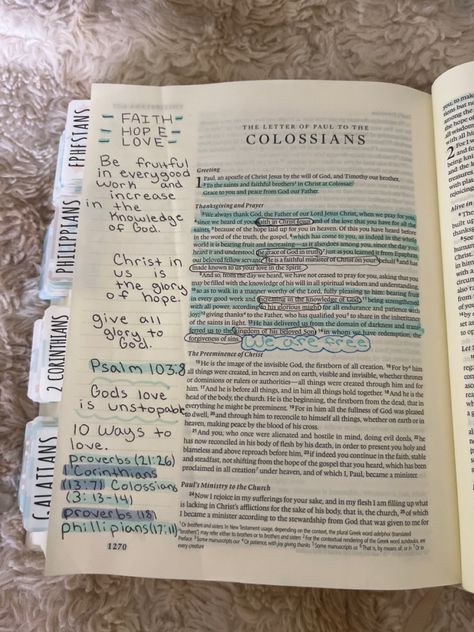 EPHESIANS
PHILIPPIANS
2 CORINTHIANS
GALATIANS
FAITH
HOPE
LOVE
Be fruitful
in every good
work and
increase
in the
knowledge
of God.
Christ in
us is the
glory
of hope.
give all
glory to
God.
Psalm 103:8
Gods love
is unstopable
10 ways to
love.
proverbs (21:26)
1 Corinthians
(13:7) Colossians
(3:13-14)
proverbs (18)
phillipians (17:11)
1270
THE LETTER OF PAUL TO THE
COLOSSIANS
Greeting
1 Paul, an apostle of Christ Jesus by the will of God, and Timothy our brother,
2 To the saints and faithful brothers in Christ at Colossae:
Grace to you and peace from God our Father.
Thanksgiving and Prayer
3 We always thank God, the Father of our Lord Jesus Christ, when we pray for you,
since we heard of your faith in Christ Jesus and of the love that you have for all the
saints, 5 because of the hope laid up for you in heaven. Of this you have heard before
in the word of the truth, the gospel, 6 which has come to you, as indeed in the whole
world it is bearing fruit and increasing—as it also does among you, since the day you
heard it and understood the grace of God in truth, 7 just as you learned it from Epaphras
our beloved fellow servant. He is a faithful minister of Christ on your behalf 8 and has
made known to us your love in the Spirit.
9 And so, from the day we heard, we have not ceased to pray for you, asking that
you may be filled with the knowledge of his will in all spiritual wisdom and understanding,
10 so as to walk in a manner worthy of the Lord, fully pleasing to him: bearing fruit
in every good work and increasing in the knowledge of God; 11 being strengthened
with all power, according to his glorious might, for all endurance and patience with
joy; 12 giving thanks to the Father, who has qualified you to share in the inheritance
of the saints in light. 13 He has delivered us from the domain of darkness and trans-
ferred us to the kingdom of his beloved Son, 14 in whom we have redemption, the
forgiveness of sins.
We are free
The Preeminence of Christ
15 He is the image of the invisible God, the firstborn of all creation. 16 For by him
all things were created, in heaven and on earth, visible and invisible, whether thrones
or dominions or rulers or authorities—all things were created through him and for
him. 17 And he is before all things, and in him all things hold together. 18 And he is the
head of the body, the church. He is the beginning, the firstborn from the dead, that in
everything he might be preeminent. 19 For in him all the fullness of God was pleased
to dwell, 20 and through him to reconcile to himself all things, whether on earth or in
heaven, making peace by the blood of his cross.
21 And you, who once were alienated and hostile in mind, doing evil deeds, 22 he
has now reconciled in his body of flesh by his death, in order to present you holy and
blameless and above reproach before him, 23 if indeed you continue in the faith, stable
and steadfast, not shifting from the hope of the gospel that you heard, which has been
proclaimed in all creation under heaven, and of which I, Paul, became a minister.
Paul's Ministry to the Church
24 Now I rejoice in my sufferings for your sake, and in my flesh I am filling up what
is lacking in Christ's afflictions for the sake of his body, that is, the church, 25 of which
I became a minister according to the stewardship from God that was given to me for